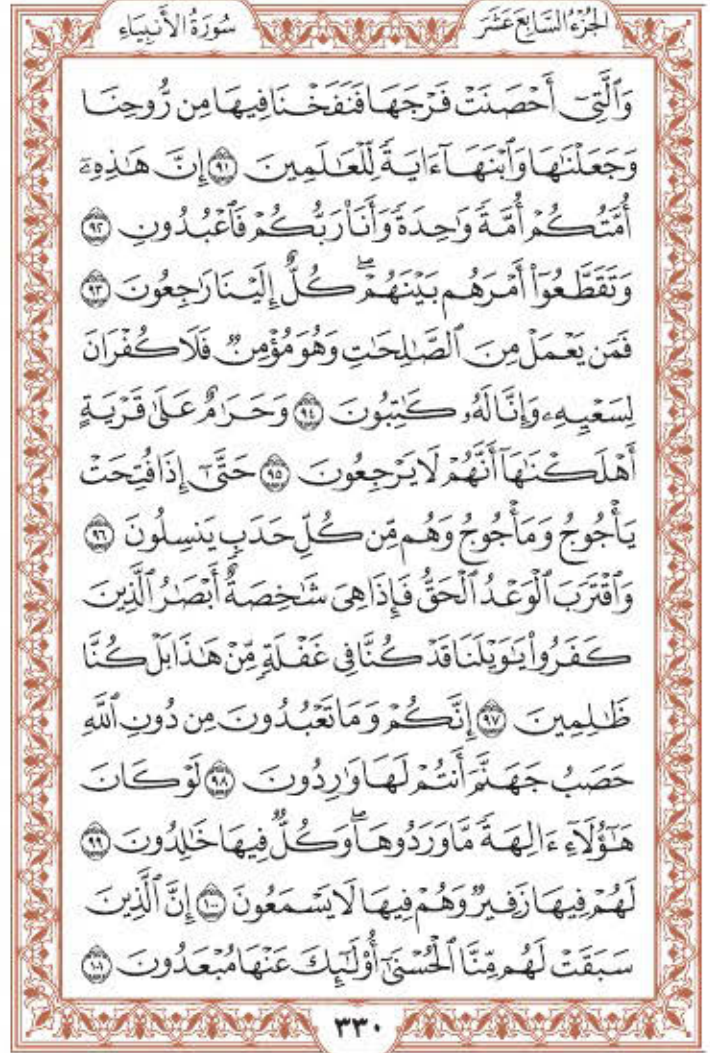 الجُزْءُ السَّابِعَ عَشَرَ سُورَةُ الأَنبِيَاءِ
وَٱلَّتِىٓ أَحْصَنَتْ فَرْجَهَا فَنَفَخْنَا فِيهَا مِن رُّوحِنَا
وَجَعَلْنَٰهَا وَٱبْنَهَآ ءَايَةً لِّلْعَٰلَمِينَ ۝٩١ إِنَّ هَٰذِهِۦٓ
أُمَّتُكُمْ أُمَّةً وَٰحِدَةً وَأَنَا۠ رَبُّكُمْ فَٱعْبُدُونِ ۝٩٢
وَتَقَطَّعُوٓا۟ أَمْرَهُم بَيْنَهُمْ ۖ كُلٌّ إِلَيْنَا رَٰجِعُونَ ۝٩٣
فَمَن يَعْمَلْ مِنَ ٱلصَّٰلِحَٰتِ وَهُوَ مُؤْمِنٌ فَلَا كُفْرَانَ
لِسَعْيِهِۦ وَإِنَّا لَهُۥ كَٰتِبُونَ ۝٩٤ وَحَرَٰمٌ عَلَىٰ قَرْيَةٍ
أَهْلَكْنَٰهَآ أَنَّهُمْ لَا يَرْجِعُونَ ۝٩٥ حَتَّىٰٓ إِذَا فُتِحَتْ
يَأْجُوجُ وَمَأْجُوجُ وَهُم مِّن كُلِّ حَدَبٍ يَنسِلُونَ ۝٩٦
وَٱقْتَرَبَ ٱلْوَعْدُ ٱلْحَقُّ فَإِذَا هِىَ شَٰخِصَةٌ أَبْصَٰرُ ٱلَّذِينَ
كَفَرُوا۟ يَٰوَيْلَنَا قَدْ كُنَّا فِى غَفْلَةٍ مِّنْ هَٰذَا بَلْ كُنَّا
ظَٰلِمِينَ ۝٩٧ إِنَّكُمْ وَمَا تَعْبُدُونَ مِن دُونِ ٱللَّهِ
حَصَبُ جَهَنَّمَ أَنتُمْ لَهَا وَٰرِدُونَ ۝٩٨ لَوْ كَانَ
هَٰٓؤُلَآءِ ءَالِهَةً مَّا وَرَدُوهَا ۖ وَكُلٌّ فِيهَا خَٰلِدُونَ ۝٩٩
لَهُمْ فِيهَا زَفِيرٌ وَهُمْ فِيهَا لَا يَسْمَعُونَ ۝١٠٠ إِنَّ ٱلَّذِينَ
سَبَقَتْ لَهُم مِّنَّا ٱلْحُسْنَىٰٓ أُو۟لَٰٓئِكَ عَنْهَا مُبْعَدُونَ ۝١٠١
٣٣٠